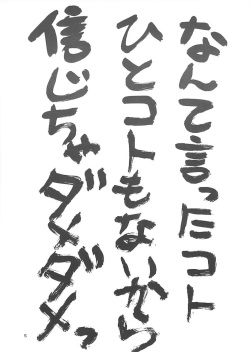 なんて言ったコト
ひとコトもないから
信じちゃダメダメっ